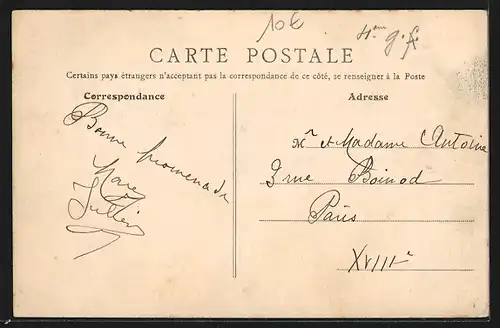 10€
4em g.f.
CARTE POSTALE
Certains pays étrangers n'acceptant pas la correspondance de ce côté, se renseigner à la Poste
Correspondance
Adresse
Bonne promenade
Mr et Madame Antoine
3 rue Boinod
Paris
XVIIIe